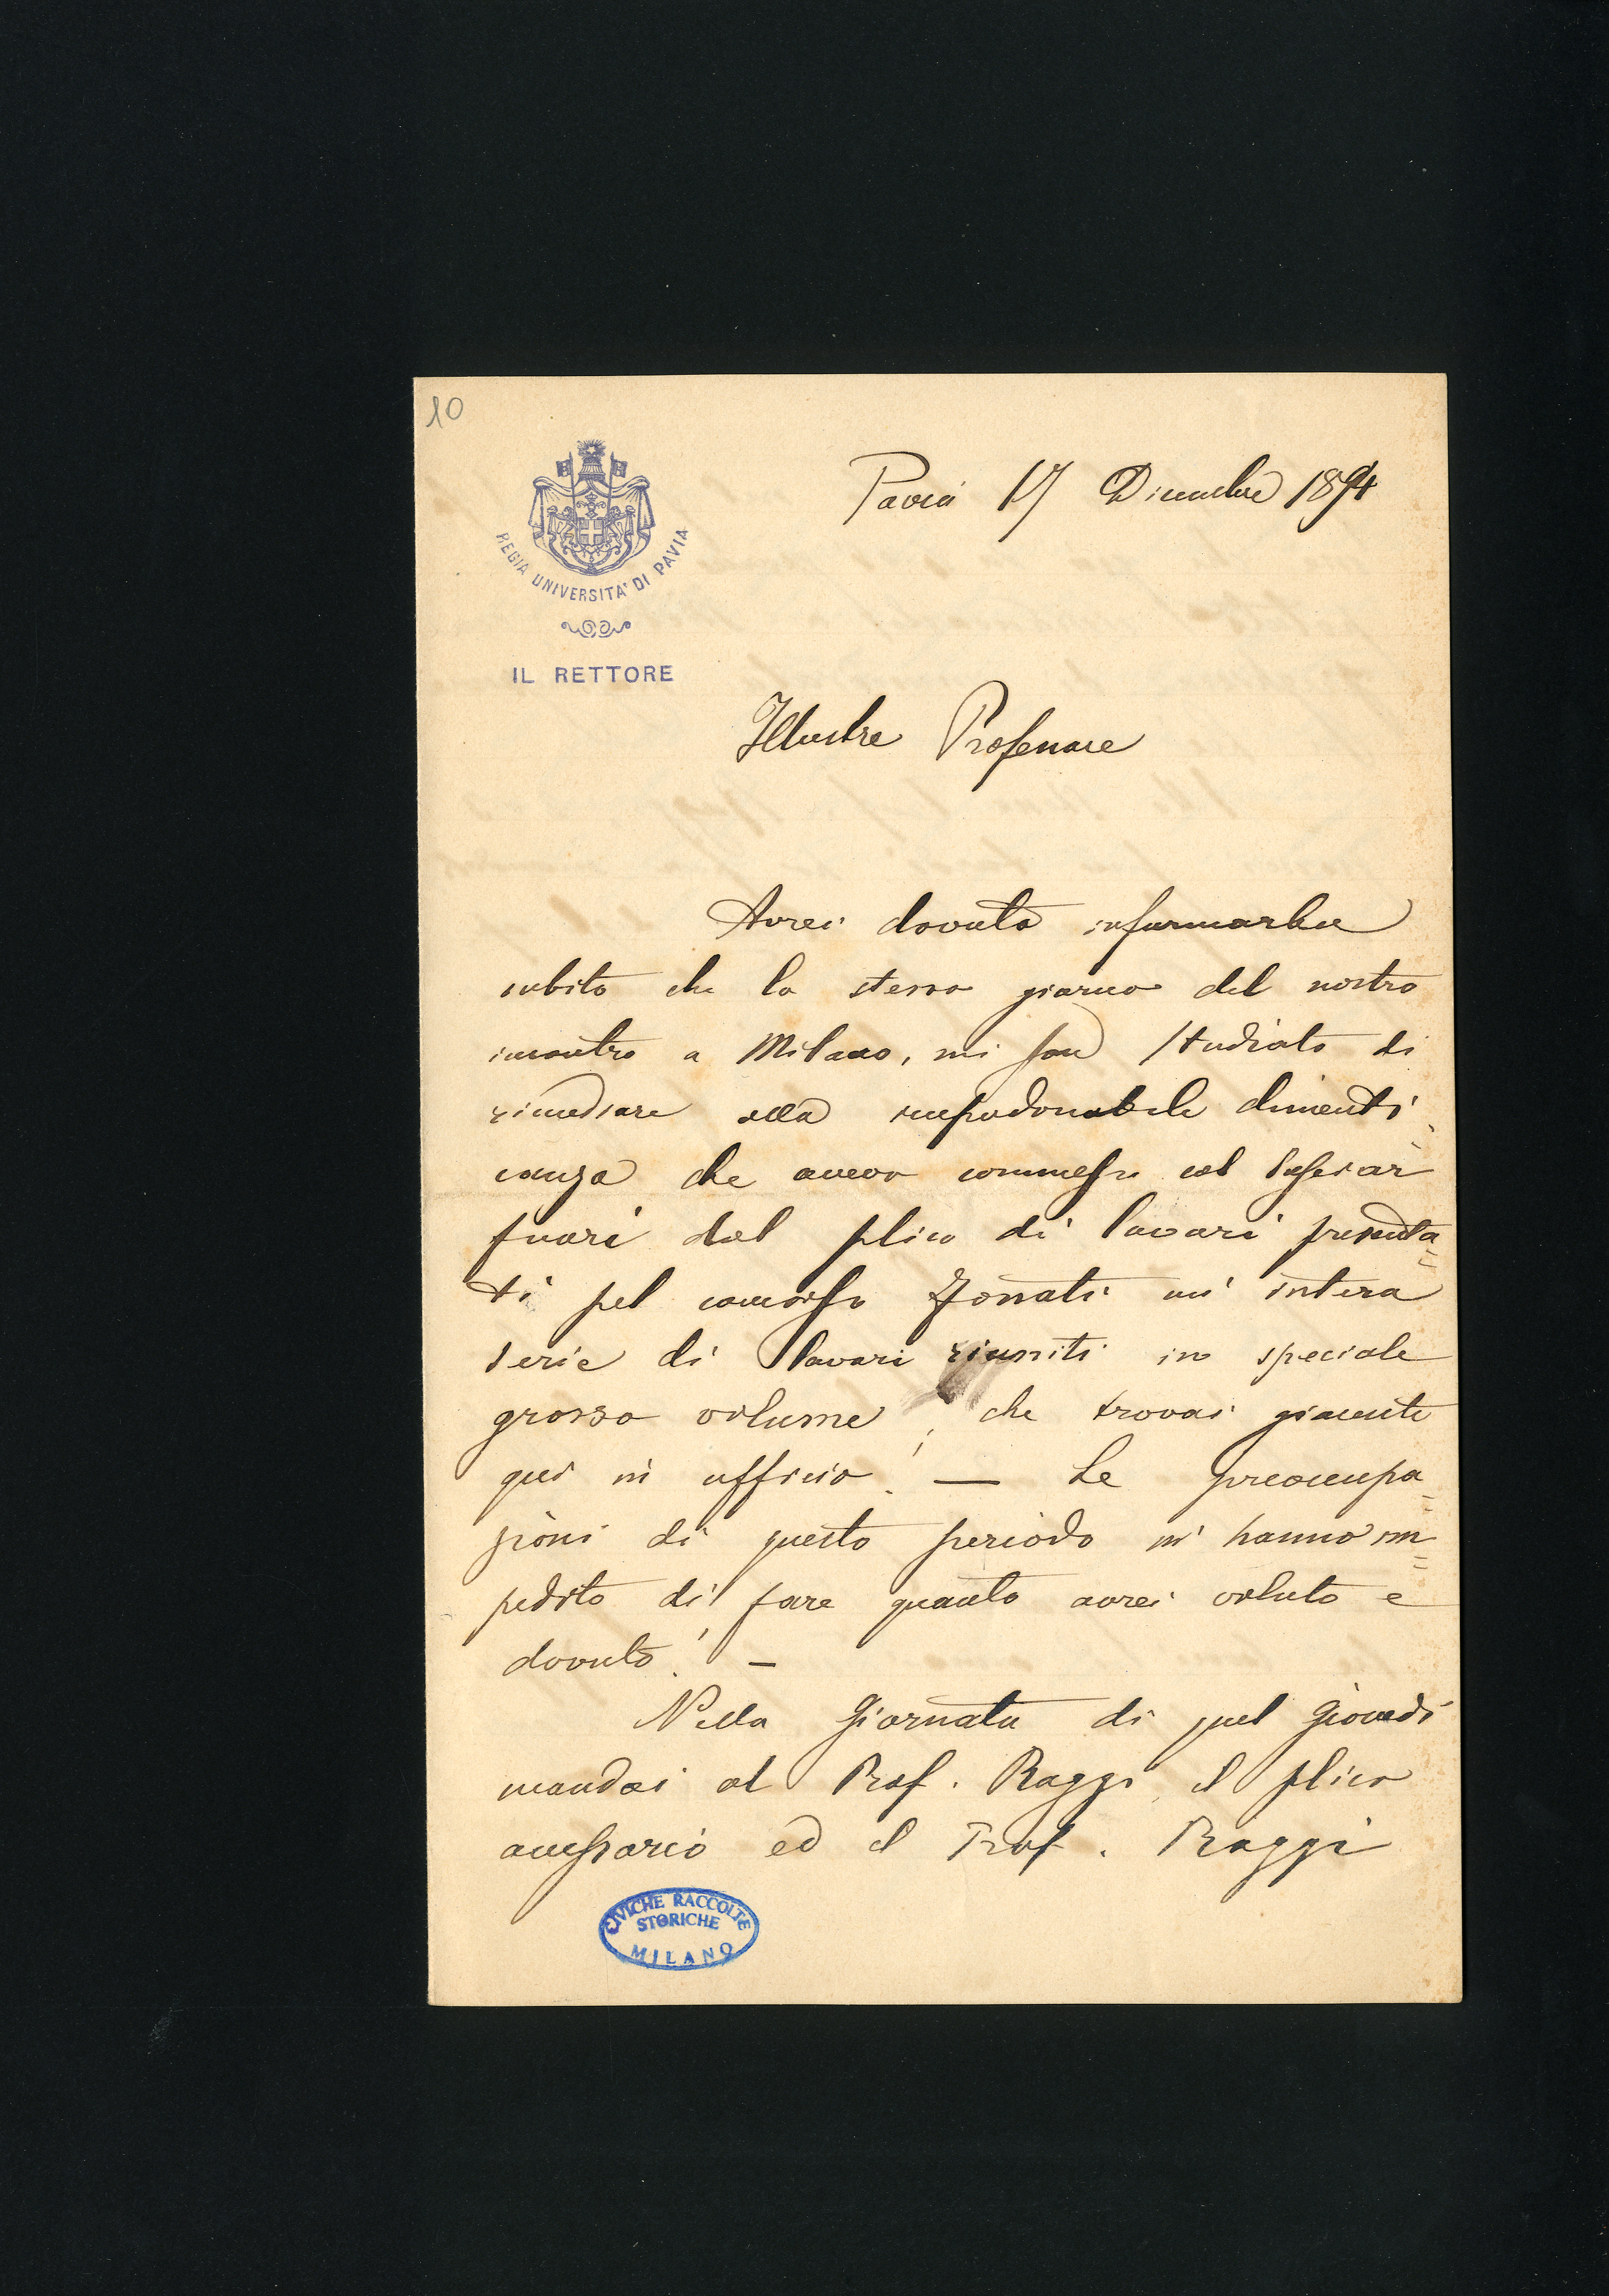 10
REGIA UNIVERSITA' DI PAVIA
IL RETTORE
Pavia 17 Dicembre 1894
Illustre Professore
Avrei dovuto informarla
subito che lo stesso giorno del nostro
incontro a Milano, mi son studiato di
rimediare alla imperdonabile dimenti-
canza che avevo commesso col lasciar
fuori dal plico di lavori presenta=
ti pel concorso Zonati un' intera
serie di lavori riuniti in speciale
grosso volume, che trovai giacente
qui in ufficio! — Le preoccupa=
zioni di questo periodo m' hanno im=
pedito di fare quanto avrei voluto e
dovuto! —
Nella Giornata di quel Giovedì
mandai al Prof. Raggi il plico
accessorio ed il Prof. Raggi
CIVICHE RACCOLTE
STORICHE
MILANO